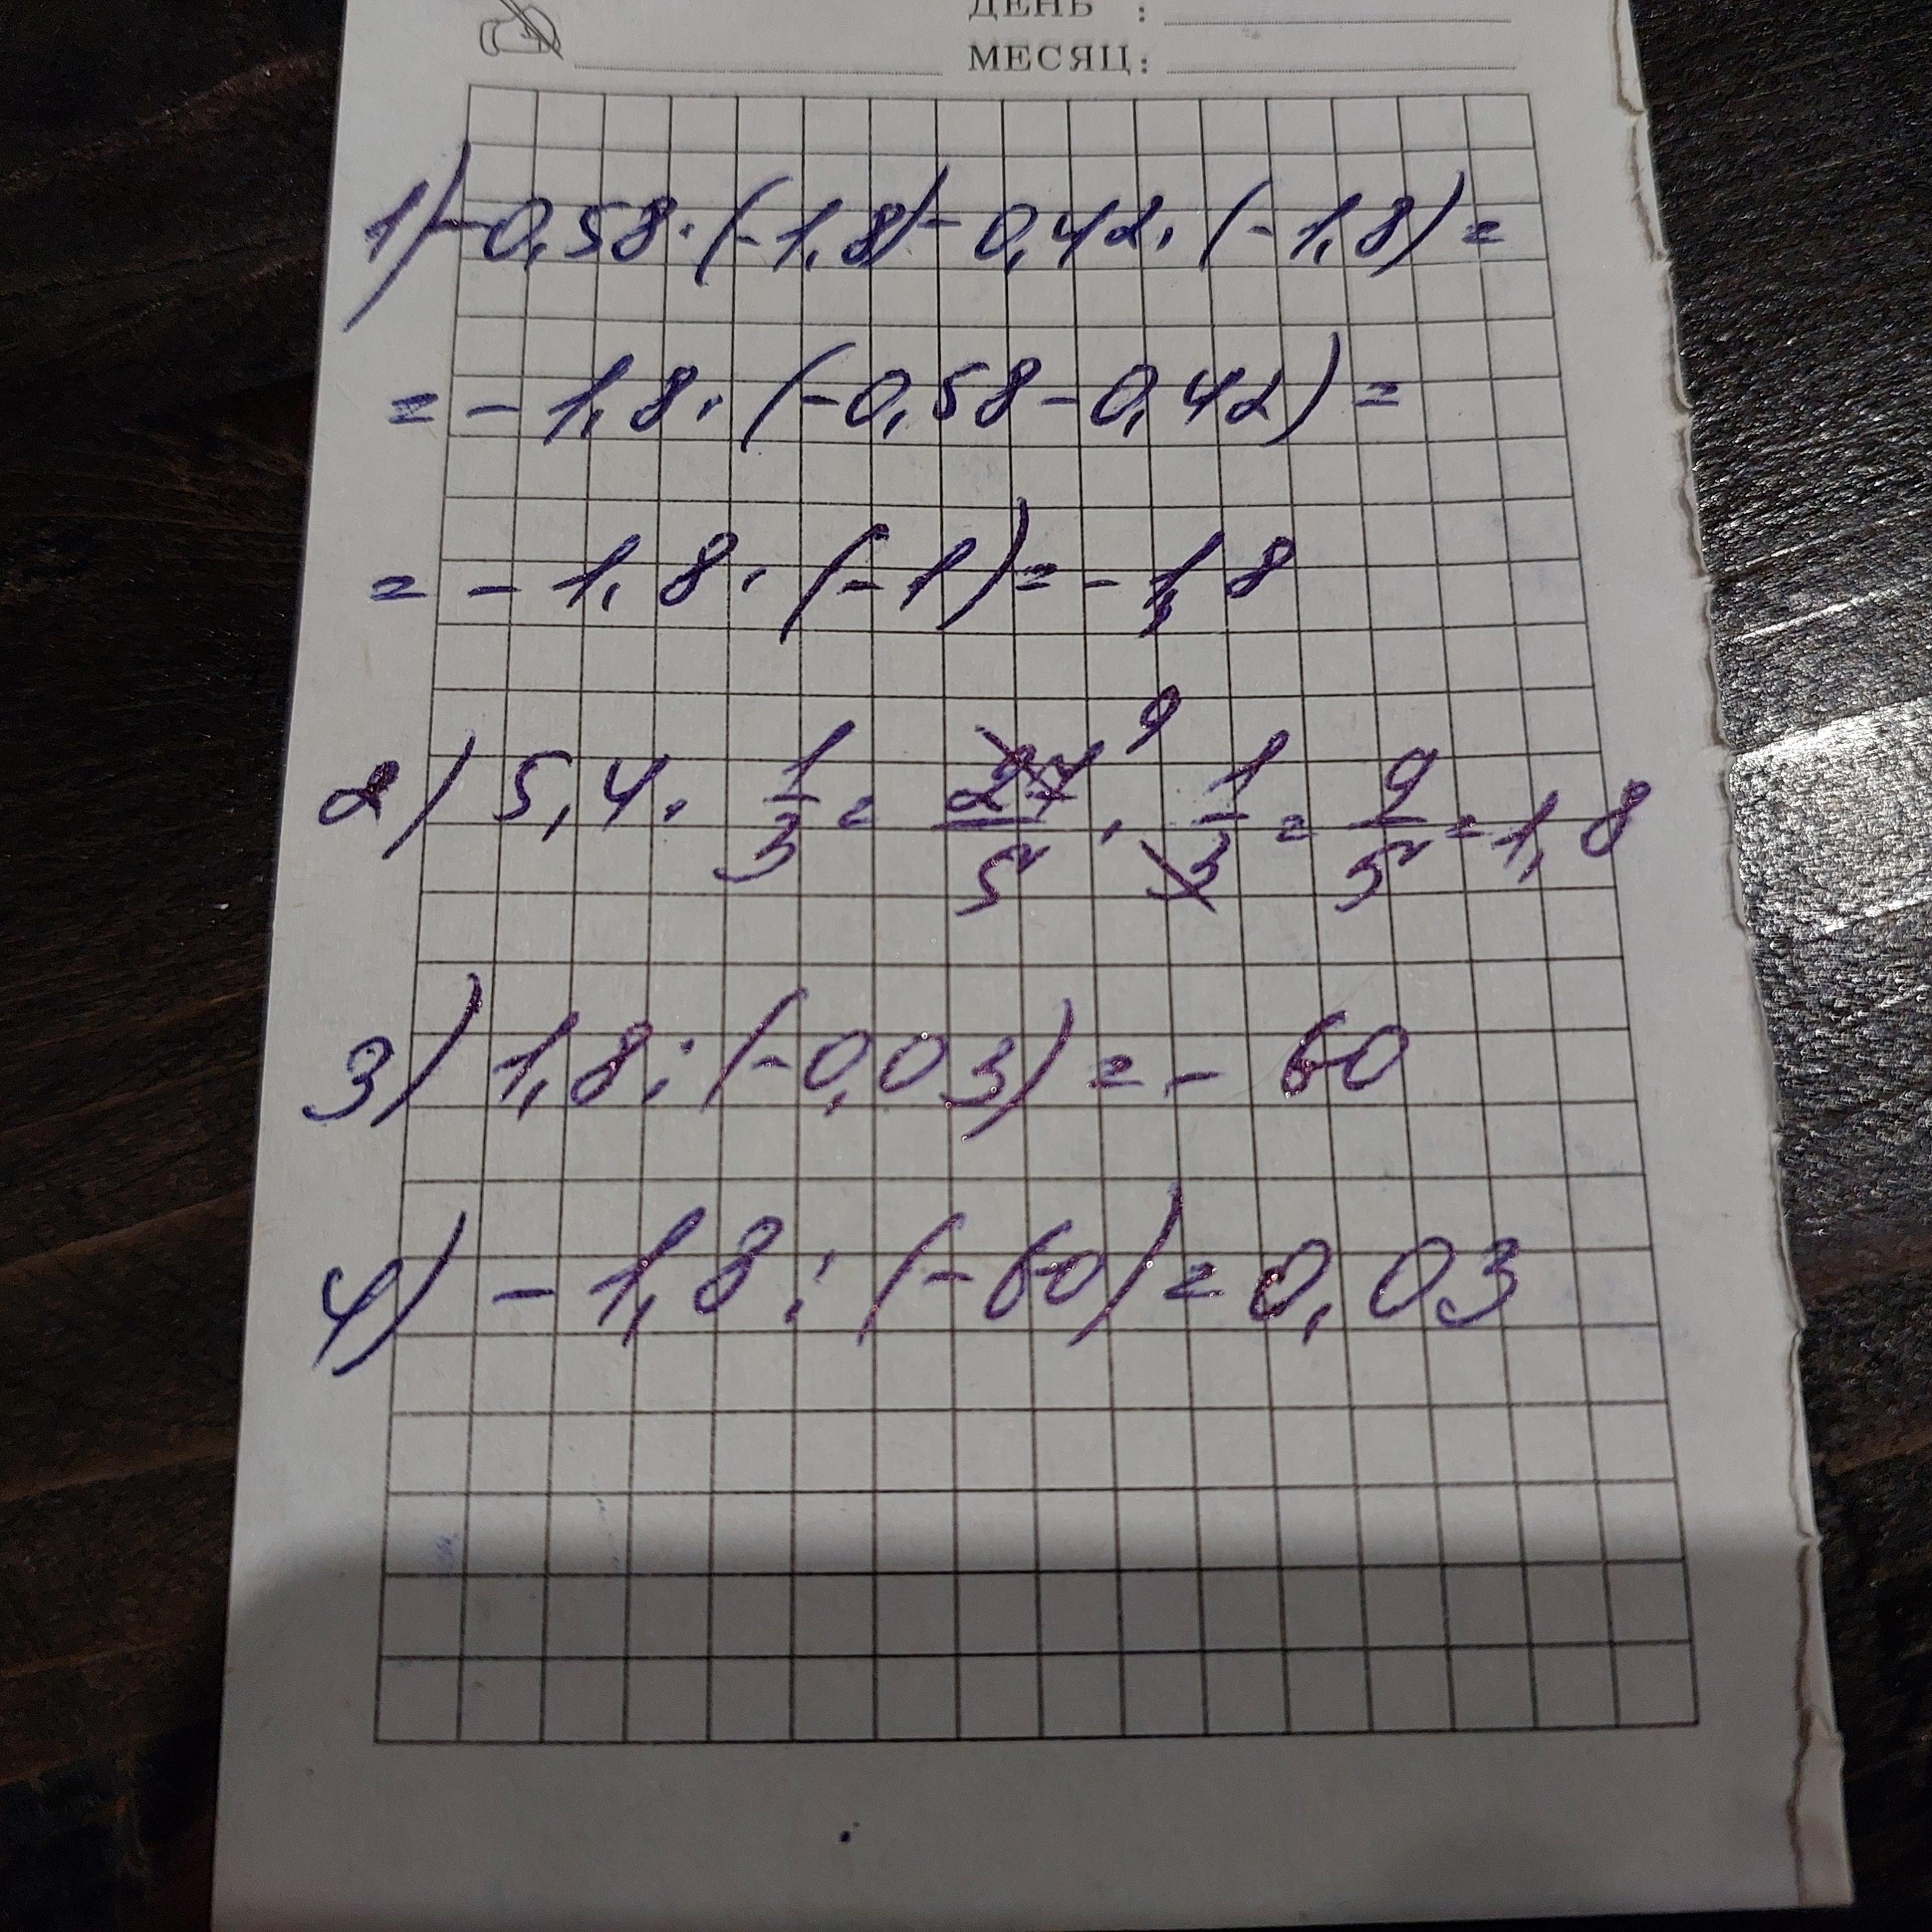 ДЕНЬ :
МЕСЯЦ:
1) -0,58 · (-1,8) - 0,42 · (-1,8) =
= - 1,8 · (-0,58 - 0,42) =
= - 1,8 · (-1) = - 1,8
2) 5,4 · 1/3 = 27/5 · 1/3 = 9/5 = 1,8
9
3) 1,8 : (-0,03) = - 60
4) - 1,8 : (-60) = 0,03